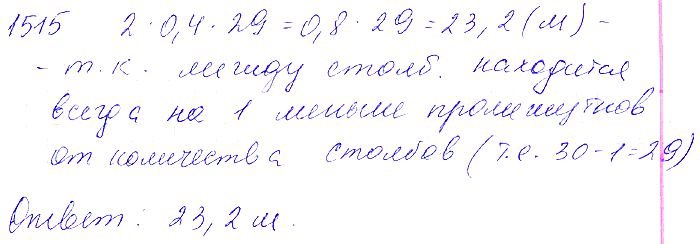 1515 2 · 0,4 · 29 = 0,8 · 29 = 23,2 (м) -
- т.к. между столб. находится
всегда на 1 меньше промежутков
от количества столбов (т.е. 30-1=29)
Ответ: 23,2 м.